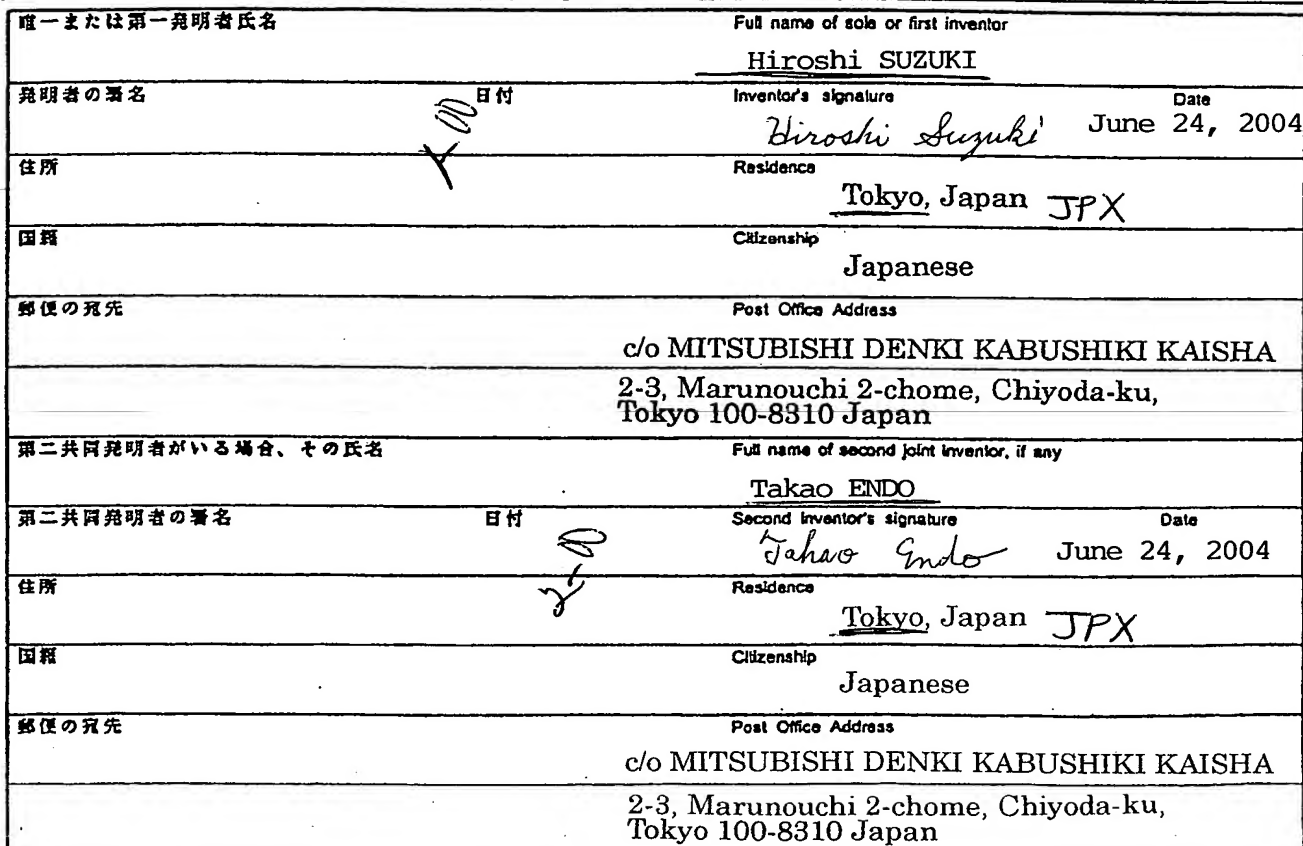 唯一または第一発明者氏名 Full name of sole or first inventor
Hiroshi SUZUKI
発明者の署名 日付 Inventor's signature Date
Hiroshi Suzuki June 24, 2004
住所 Residence
Tokyo, Japan JPX
国籍 Citizenship
Japanese
郵便の宛先 Post Office Address
c/o MITSUBISHI DENKI KABUSHIKI KAISHA
2-3, Marunouchi 2-chome, Chiyoda-ku,
Tokyo 100-8310 Japan
第二共同発明者がいる場合、その氏名 Full name of second joint inventor, if any
Takao ENDO
第二共同発明者の署名 日付 Second inventor's signature Date
Takao Endo June 24, 2004
住所 Residence
Tokyo, Japan JPX
国籍 Citizenship
Japanese
郵便の宛先 Post Office Address
c/o MITSUBISHI DENKI KABUSHIKI KAISHA
2-3, Marunouchi 2-chome, Chiyoda-ku,
Tokyo 100-8310 Japan